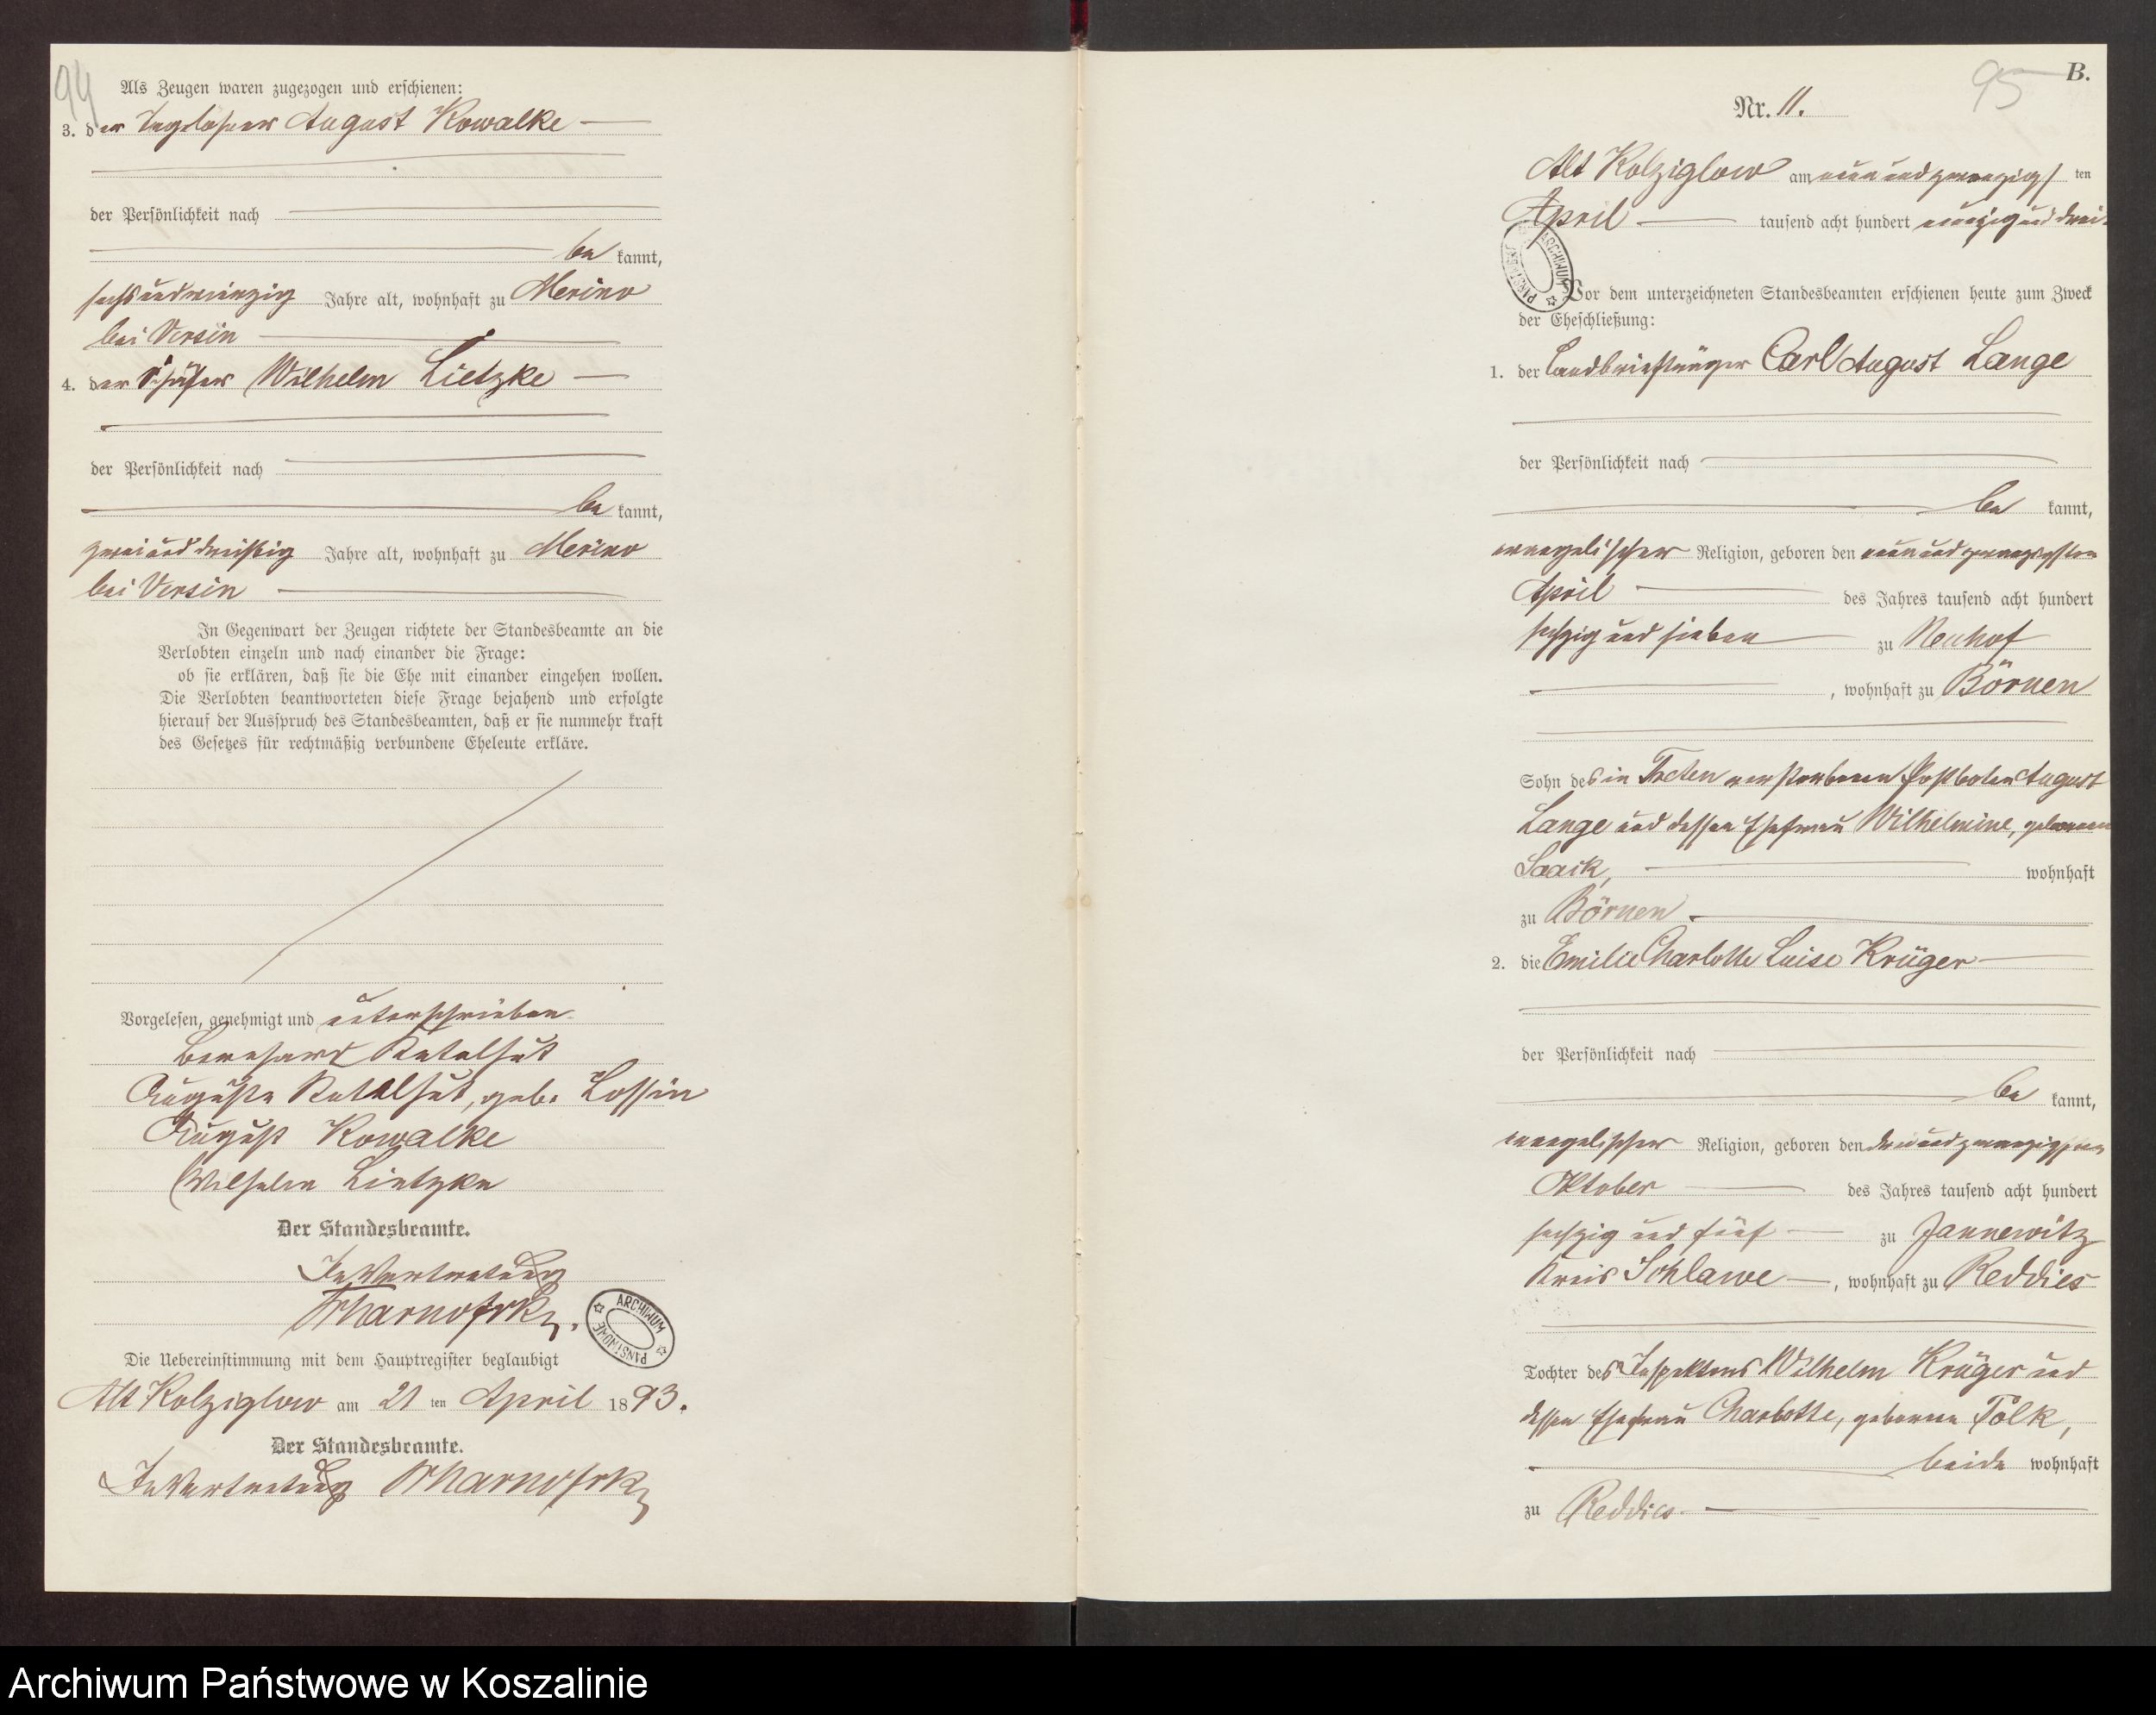 94
Als Zeugen waren zugezogen und erschienen:
3. der Tagelöhner August Kowalke
der Persönlichkeit nach
be kannt,
sechsundvierzig Jahre alt, wohnhaft zu Merino
bei Versin
4. der Schäfer Wilhelm Lietzke
der Persönlichkeit nach
be kannt,
zweiunddreißig Jahre alt, wohnhaft zu Merino
bei Versin
In Gegenwart der Zeugen richtete der Standesbeamte an die
Verlobten einzeln und nach einander die Frage:
ob sie erklären, daß sie die Ehe mit einander eingehen wollen.
Die Verlobten beantworteten diese Frage bejahend und erfolgte
hierauf der Ausspruch des Standesbeamten, daß er sie nunmehr kraft
des Gesetzes für rechtmäßig verbundene Eheleute erkläre.
Vorgelesen, genehmigt und unterschrieben
Bernhard Katelhut
Auguste Katelhut, geb. Lossin
August Kowalke
Wilhelm Lietzke
Der Standesbeamte.
In Vertretung
ARCHIWUM PAŃSTWOWE
Die Uebereinstimmung mit dem Hauptregister beglaubigt
Alt Kolziglow am 21 ten April 1893.
Der Standesbeamte.
In Vertretung
95 B.
Nr. 11.
Alt Kolziglow am neunundzwanzigs ten
April tausend acht hundert neunzig und drei
ARCHIWUM PAŃSTWOWE
Vor dem unterzeichneten Standesbeamten erschienen heute zum Zweck
der Eheschließung:
1. der Landbriefträger Carl August Lange
der Persönlichkeit nach
be kannt,
evangelischer Religion, geboren den neunundzwanzigsten
April des Jahres tausend acht hundert
sechzig und sieben zu Neuhof
, wohnhaft zu Börnen
Sohn des in Treten verstorbenen Postboten August
Lange und dessen Ehefrau Wilhelmine, geborenen
Saack, wohnhaft
zu Börnen.
2. die Emilie Charlotte Luise Krüger
der Persönlichkeit nach
be kannt,
evangelischer Religion, geboren den dreiundzwanzigsten
Oktober des Jahres tausend acht hundert
sechzig und fünf zu Jannewitz
Kreis Schlawe, wohnhaft zu Reddies
Tochter des Inspektors Wilhelm Krüger und
dessen Ehefrau Charlotte, geborenen Polk,
beide wohnhaft
zu Reddies.
Archiwum Państwowe w Koszalinie